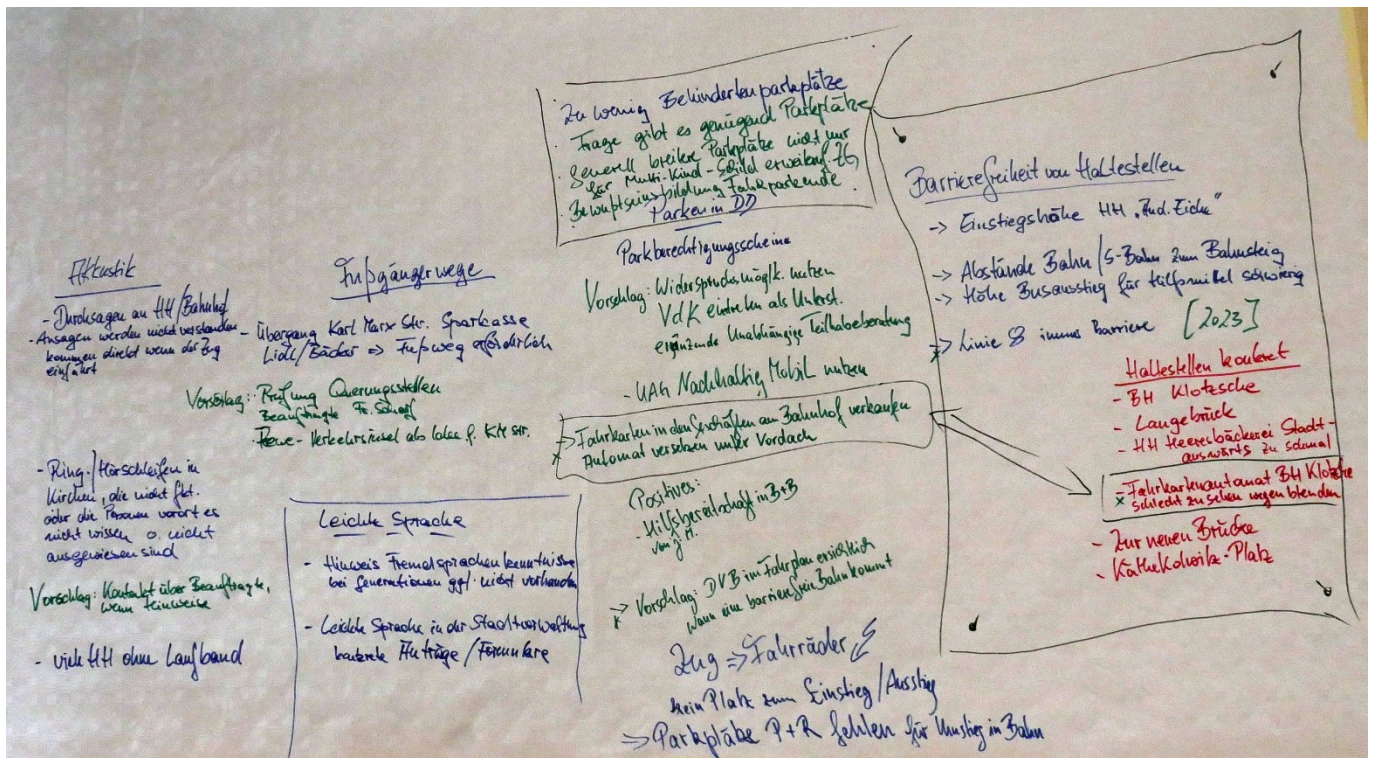 Akkustik
- Durchsagen an HH/Bahnhof
- Ansagen werden nicht verstanden
kommen direkt wenn der Zug
einfährt
- Ring-/Hörschleifen in
Kirchen, die nicht fkt.
oder die Personen vorort es
nicht wissen o. nicht
ausgewiesen sind
Vorschlag: Kontakt über Beauftragte,
wenn Hinweise
- viele HH ohne Laufband
Fußgängerwege
- Übergang Karl Marx Str. Sparkasse
Lidl/Bäcker => Fußweg erforderlich
Vorschlag: Prüfung Querungsstellen
Beauftragte Fr.
- Verkehrsinsel als f. KM str.
Leichte Sprache
- Hinweis Fremdsprachenkenntnisse
bei Generationen ggf. nicht vorhanden
- Leichte Sprache in der Stadtverwaltung
konkrete Anträge/Formulare
Zu wenig Behindertenparkplätze
· Frage gibt es genügend Parkplätze
· Generell breitere Parkplätze nicht nur
für Multi-Kind-Schild erweitern
· Bewußtseinsbildung Falschparkende
Parken in DD
Parkberechtigungsscheine
Vorschlag: Widerspruchsmöglk. nutzen
VdK eintreten als Unterst.
ergänzende Unabhängige Teilhabeberatung
- UAG Nachhaltig Mobil nutzen
-> Fahrkarten in den Geschäften am Bahnhof verkaufen
x Automat versetzen unter Vordach
Positives:
- Hilfsbereitschaft in B+B
von j. M.
-> Vorschlag: DVB im Fahrplan ersichtlich
x wann eine barrierefreie Bahn kommt
Zug => Fahrräder
kein Platz zum Einstieg/Ausstieg
=> Parkplätze P+R fehlen für Umstieg in Bahn
Barrierefreiheit von Haltestellen
-> Einstiegshöhe HH "Ind. Eiche"
-> Abstände Bahn/S-Bahn zum Bahnsteig
-> Höhe Busausstieg für Hilfsmittel schwierig
-> Linie 8 immer Barriere [2023]
x
Haltestellen konkret
- BH Klotzsche
- Langebrück
- HH Heeresbäckerei Stadt-
auswärts zu schmal
- Fahrkartenautomat BH Klotzsche
x schlecht zu sehen wegen blenden
- Zur neuen Brücke
- Käthe Kollwitz-Platz